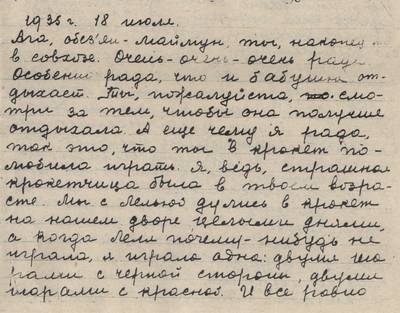 1935 г. 18 июля.
Ага, обез'ян-маймун, ты, наконец,
в совхозе. Очень-очень-очень рада
Особенно рада, что и бабушка от-
дыхает. Ты, пожалуйста, смо-
три за тем, чтобы она получше
отдыхала. А еще чему я рада,
так это, что ты в крокет по-
любила играть. Я, ведь, страшная
крокетчица была в твоем возра-
сте. Мы с Лелькой дулись в крокет
на нашем дворе целыми днями,
а когда Леля почему-нибудь не
играла, я играла одна: двумя ша-
рами с черной стороны, двумя
шарами с красной. И все равно